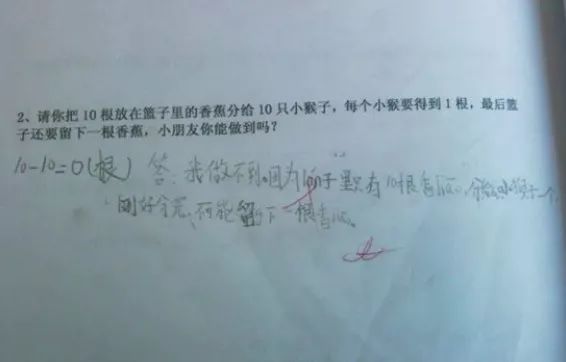 2、请你把 10 根放在篮子里的香蕉分给 10 只小猴子，每个小猴要得到 1 根，最后篮
子还要留下一根香蕉，小朋友你能做到吗？
10-10=0(根) 答：我做不到。因为lan子里只有10根香jiao。分给小猴子一个，
刚好分完，不可能留下一根香jiao。